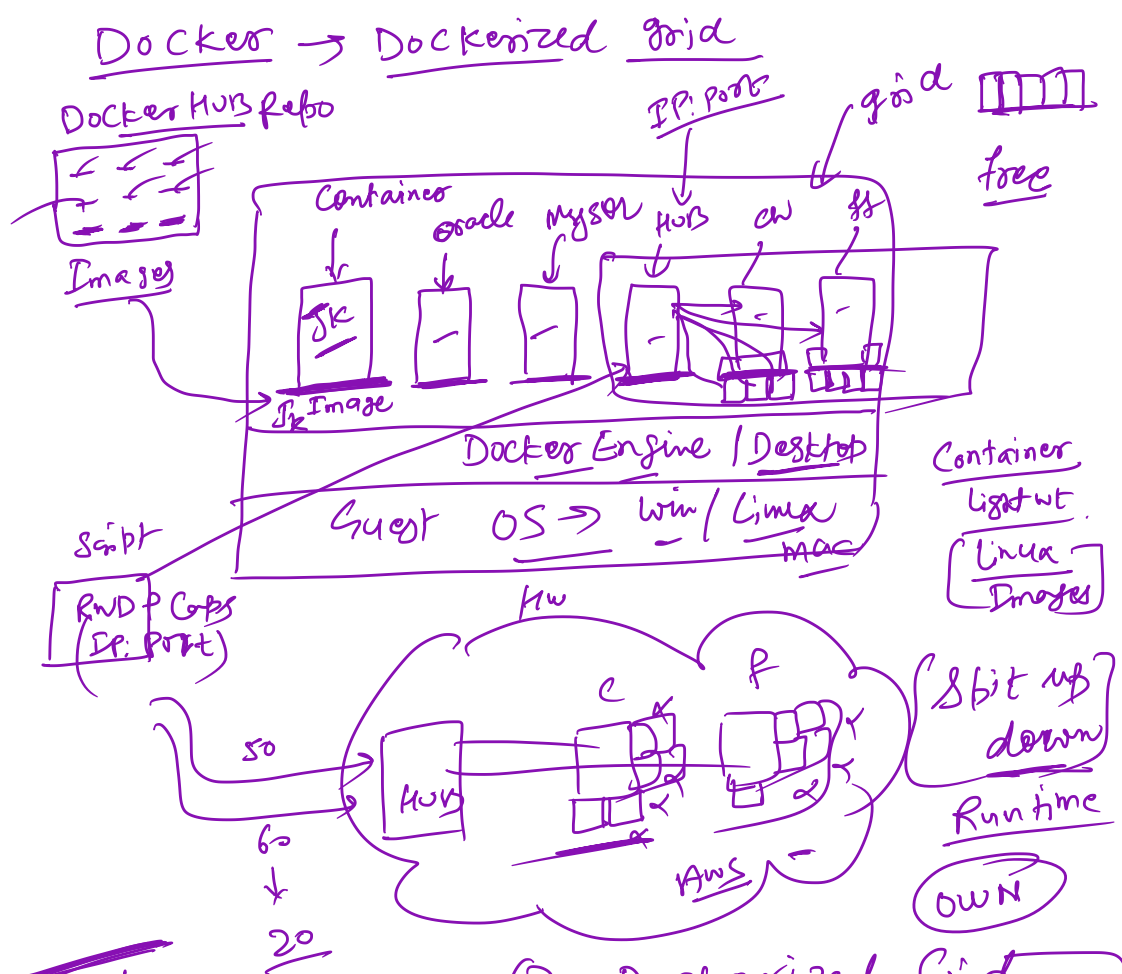 Docker → Dockerized grid
Docker HUB Repo
IP: Port
grid
free
Container
Oracle
MySQL
HUB
CH
ff
Images
JK
Jk Image
Docker Engine / Desktop
Guest OS → Win / Linux
MAC
Container
Light wt
Linux
Images
Script
RWD + Caps
(IP: Port)
HW
C
f
Spit up
down
50
HUB
60
20
AWS
Runtime
OWN